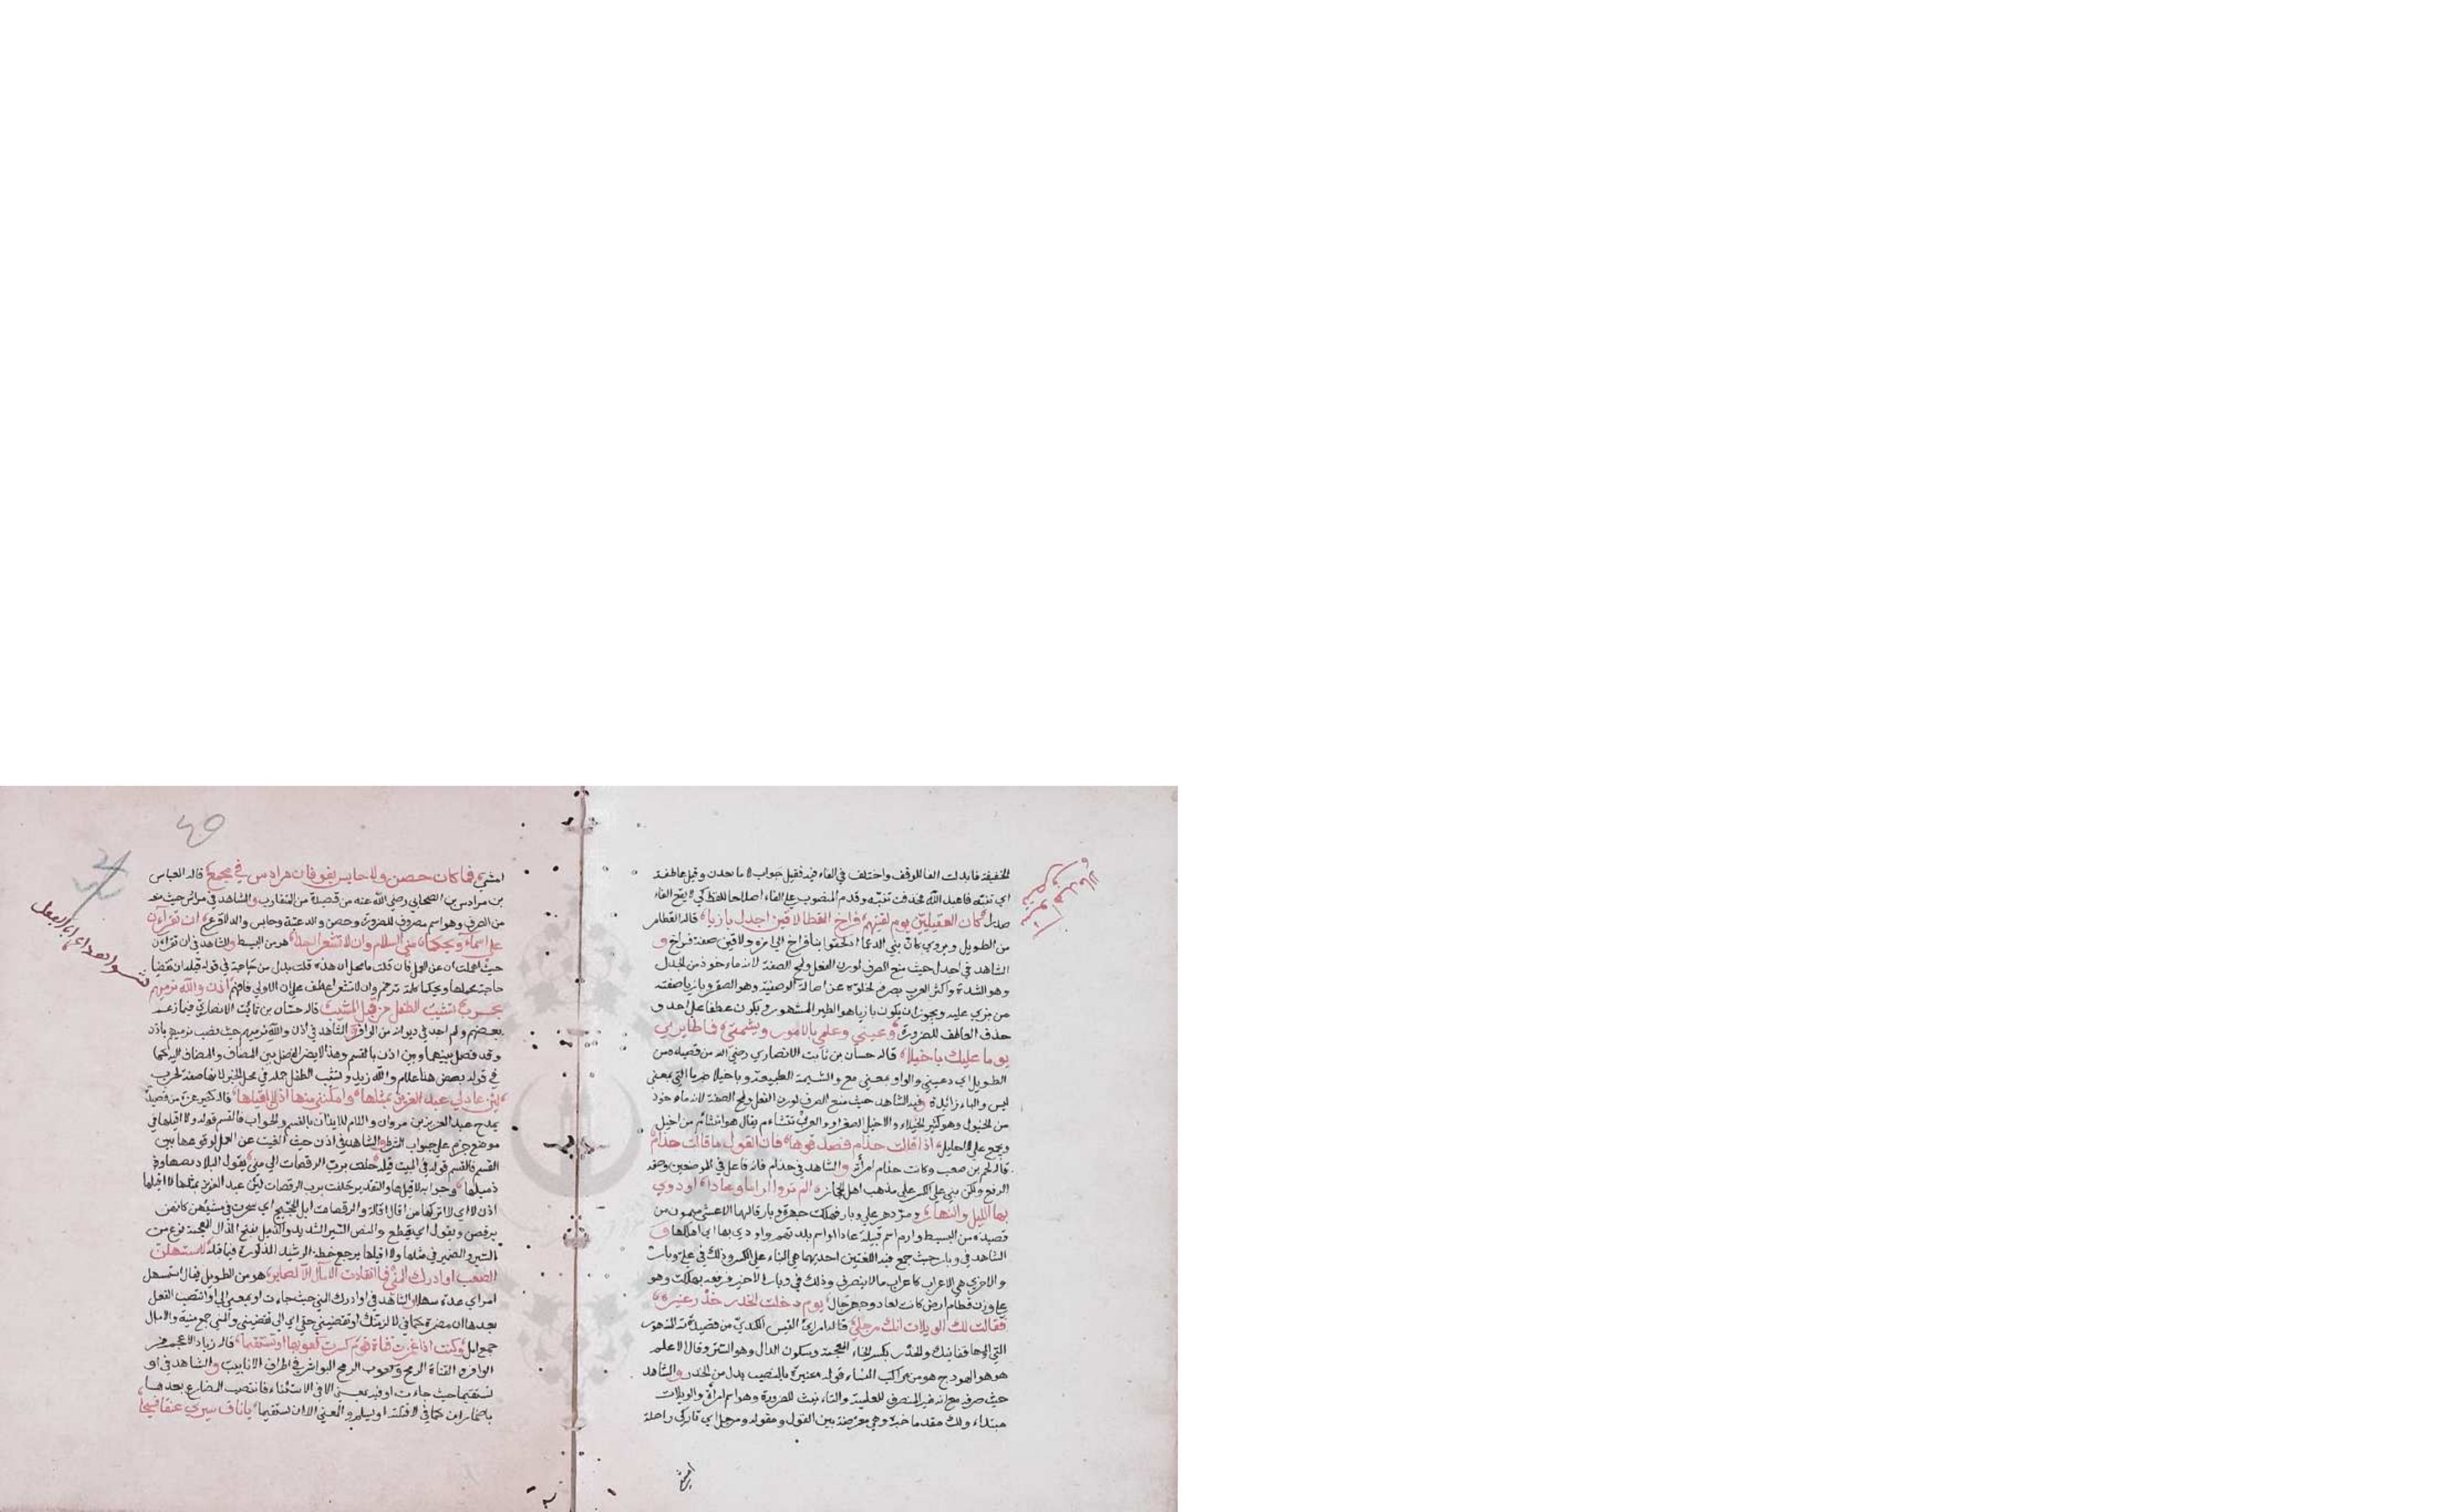 الخفيفة فابدلت الفا للوقف واختلف في الفاء فيه فقيل جواب لاما بعدن وقيل عاطفة
اي تنبه فاعبد الله فحذفت تنبه وقدم المنصوب علي الفاء اصلاحا للفظ كي لا يقع الفاء
صدرا كان العقيليين يوم لقيتهم فراخ القطا لاقين اجدل بازيا قاله القطامي
من الطويل ويروي كان بني الدعما اذ لحقوا بنا فراخ الي اخره ولاقين صفة فراخ و
الشاهد في اجدل حيث منع الصرف لوزن الفعل ولمح الصفة لانه ماخوذ من الجدل
وهو الشدة واكثر العرب يصرفه لخلوه عن اصالة الوصفية وهو الصقر وبازيا صفته
من بزي عليه ويجوز ان يكون بازيا هو الطير المشهور ويكون عطفا علي اجدل و
حذف العاطف للضرورة دعيني وعلمي بالامور وشيمتي فما طايري
يوما عليك باخيلا قاله حسان بن ثابت الانصاري رضي الله من قصيدة من
الطويل اي دعيني والواو بمعني مع والشيمة الطبيعة وباخيلا خبر ما التي بمعني
ليس والباء زائدة وفيه الشاهد حيث منع الصرف لوزن الفعل ولمح الصفة لانه ماخوذ
من الخيول وهو كثير الخيلاء والاخيل الصقر او والعرب تتشاءم يقال هو اشئم من اخيل
ويجمع علي الاخايل اذا قالت حذام فصدقوها فان القول ما قالت حذام
قاله لجيم بن صعب وكانت حذام امرأة والشاهد في حذام فانه فاعل في الموضعين وحقه
الرفع ولكن بني علي الكسر علي مذهب اهل الحجاز الم تروا ارما وعادا اودي
بها الليل والنهار ومر دهر علي وبار فهلكت جهرة وبار قالهما الاعشي ميمون من
قصيدة من البسيط وارم اسم قبيلة عاد او اسم بلدتهم واودي بها اي اهلكها و
الشاهد في وبار حيث جمع فيه اللغتين احديهما هي البناء علي الكسر وذلك في علي وبار
والاخري هي الاعراب كاعراب ما لا ينصرف وذلك في وبار الاخير فرفعه بهلكت وهو
علي وزن قطام ارض كانت لعاد ويوم دخلت الخدر خدر عنيزة
فقالت لك الويلات انك مرجلي قاله امرئ القيس الكندي من قصيدته المشهورة
التي اولها قفا نبك والخدر بكسر الخاء المعجمة وسكون الدال وهو الستر وقال الاعلم
هو هو الهودج هو من مراكب النساء قوله عنيزة بالنصب بدل من الخدر والشاهد
حيث صرفه مع انه غير المنصرف للعلمية والتانيث للضرورة وهو اسم امرأة والويلات
مبتداء ولك مقدما خبره وهي معترضة بين القول ومقوله ومرجلي اي تاركي راجلة
امشي
امشي فما كان حصن ولا حابس يفوقان مرداس في مجمع قاله العباس
بن مرداس بن الصحابي رضي الله عنه من قصيدة من المتقارب والشاهد في مرداس حيث منع
من الصرف وهو اسم مصروف للضرورة وحصن والد عيينة وحابس والد لاقرع ان تقرأان
علي اسماء ويحكما مني السلام وان لا تشعرا احدا هو من البسيط والشاهد في ان تقرأان
حيث اهملت ان عن العمل فان قلت ما محل ان هذه قلت بدل من حاجة في قوله قبله ان تقضيا
حاجة محملها ويحكما كلمة ترحم وان لا تشعرا عطف علي ان الاولي فافهم اذن والله نرميهم
بحرب تشيب الطفل من قبل المشيب قاله حسان بن ثابت الانصاري فيما زعم
بعضهم ولم اجد في ديوانه من الوافر والشاهد في اذن والله نرميهم حيث نصب نرميهم باذن
وقد فصل بينهما وبين اذن بالقسم وهذا لا يضر الفصل بين المضاف والمضاف اليه كما
في قوله بعض هذا غلام والله زيد وتشيب الطفل جملة في محل الجر لانها صفة لحرب
لئن عاد لي عبد العزيز بمثلها وامكنني منها اذن لا اقيلها قاله كثير عزة من قصيدة
يمدح عبد العزيز بن مروان واللام للايذان بالقسم والجواب فالقسم قوله ولا اقيلها في
موضع جزم علي جواب الشرط والشاهد في اذن حيث الغيت عن العمل لوقوعها بين
القسم فالقسم قوله في البيت قبله حلفت برب الرقصات الي مني يغول البلاد نصها و
ذميلها وجوابه لا اقيلها والتقدير حلفت برب الرقصات لئن عبد العزيز بمثلها لا اقيلها
اذن لا اي لا اتركها من اقال اقالة والرقصات ابل الحجيج اي سعت في مشيهن كانهن
يرقصن ويقول اي يقطع والنص السير الشديد والذميل بفتح الذال المعجمة نوع من
السير والضمير في مثلها ولا اقيلها يرجع خطة الرشيد المذكورة فيما قبله لاستسهلن
الصعب او ادرك المني فما انقادت الآمال الا لصابر هو من الطويل يقال استسهل
امراي عده سهلا والشاهد في او ادرك المني حيث جاءت او بمعني الي او انتصب الفعل
بعدها ان مضمرة كما في لالزمنك او تقضيني حقي اي الي تقضيني والمني جمع منية والآمال
جمع امل وكنت اذا غمزت قناة قوم كسرت كعوبها او تستقيما قاله زياد الاعجم من
الوافر والقناة الرمح وكعوب الرمح النواشز في اطراف الانابيب والشاهد في او
تستقيما حيث جاءت او فيه بمعني الا في الاستثناء فانتصب المضارع بعدها
باضمار ان كما في لاقتلنه او يسلم والمعني الا ان تستقيما ياناق سيري عنقا فسيحا